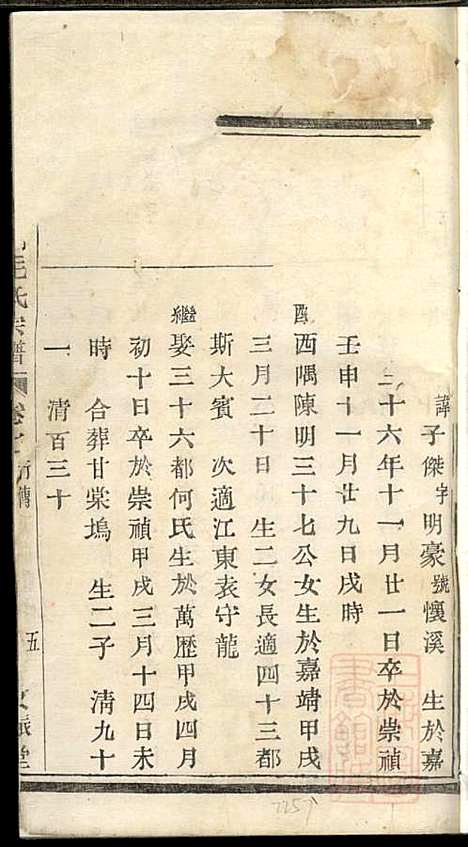 諱子傑字明豪號懷溪 生於嘉
三十六年十一月廿一日卒於崇禎
壬申十一月廿九日戌時
配西隅陳明三十七公女生於嘉靖甲戌
三月二十日 生二女長適四十三都
斯大賓 次適江東袁守龍
繼娶三十六都何氏生於萬歷甲戌四月
初十日卒於崇禎甲戌三月十四日未
時 合葬甘棠塢 生二子 清九十
一 清百三十
毛氏宗譜 卷 行傳 五